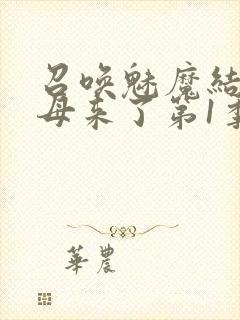 召唤魅魔結
母来了第1季
華農